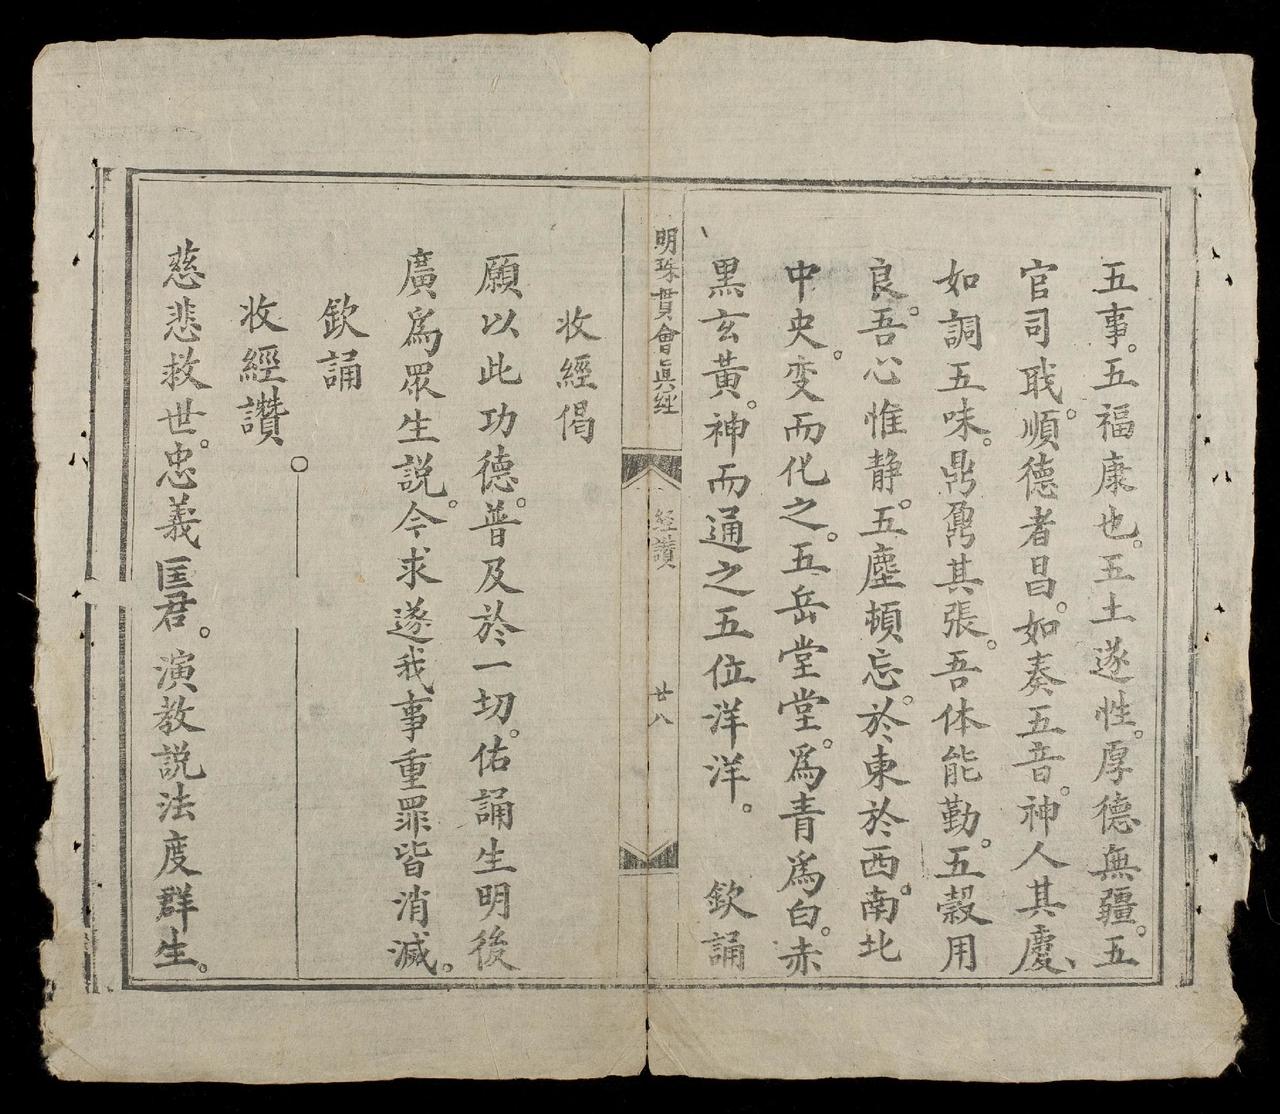 五事。五福康也。五土遂性。厚德無疆。五
官司戢。順德者昌。如奏五音。神人其慶、
如調五味。鼎鼐其張。吾体能勤。五穀用
良。吾心惟静。五塵頓忘。於東於西。南北
中央。变而化之。五岳堂堂。為青為白。赤
黑玄黃。神而通之五位洋洋。　欽誦
明珠貫會眞經
經讚
廿八
收經偈
願以此功德。普及於一切。佑誦生明後
廣為眾生説。今求遂我事重罪皆消滅。
欽誦
收經讚
慈悲救世。忠義匡君。演教説法度群生。